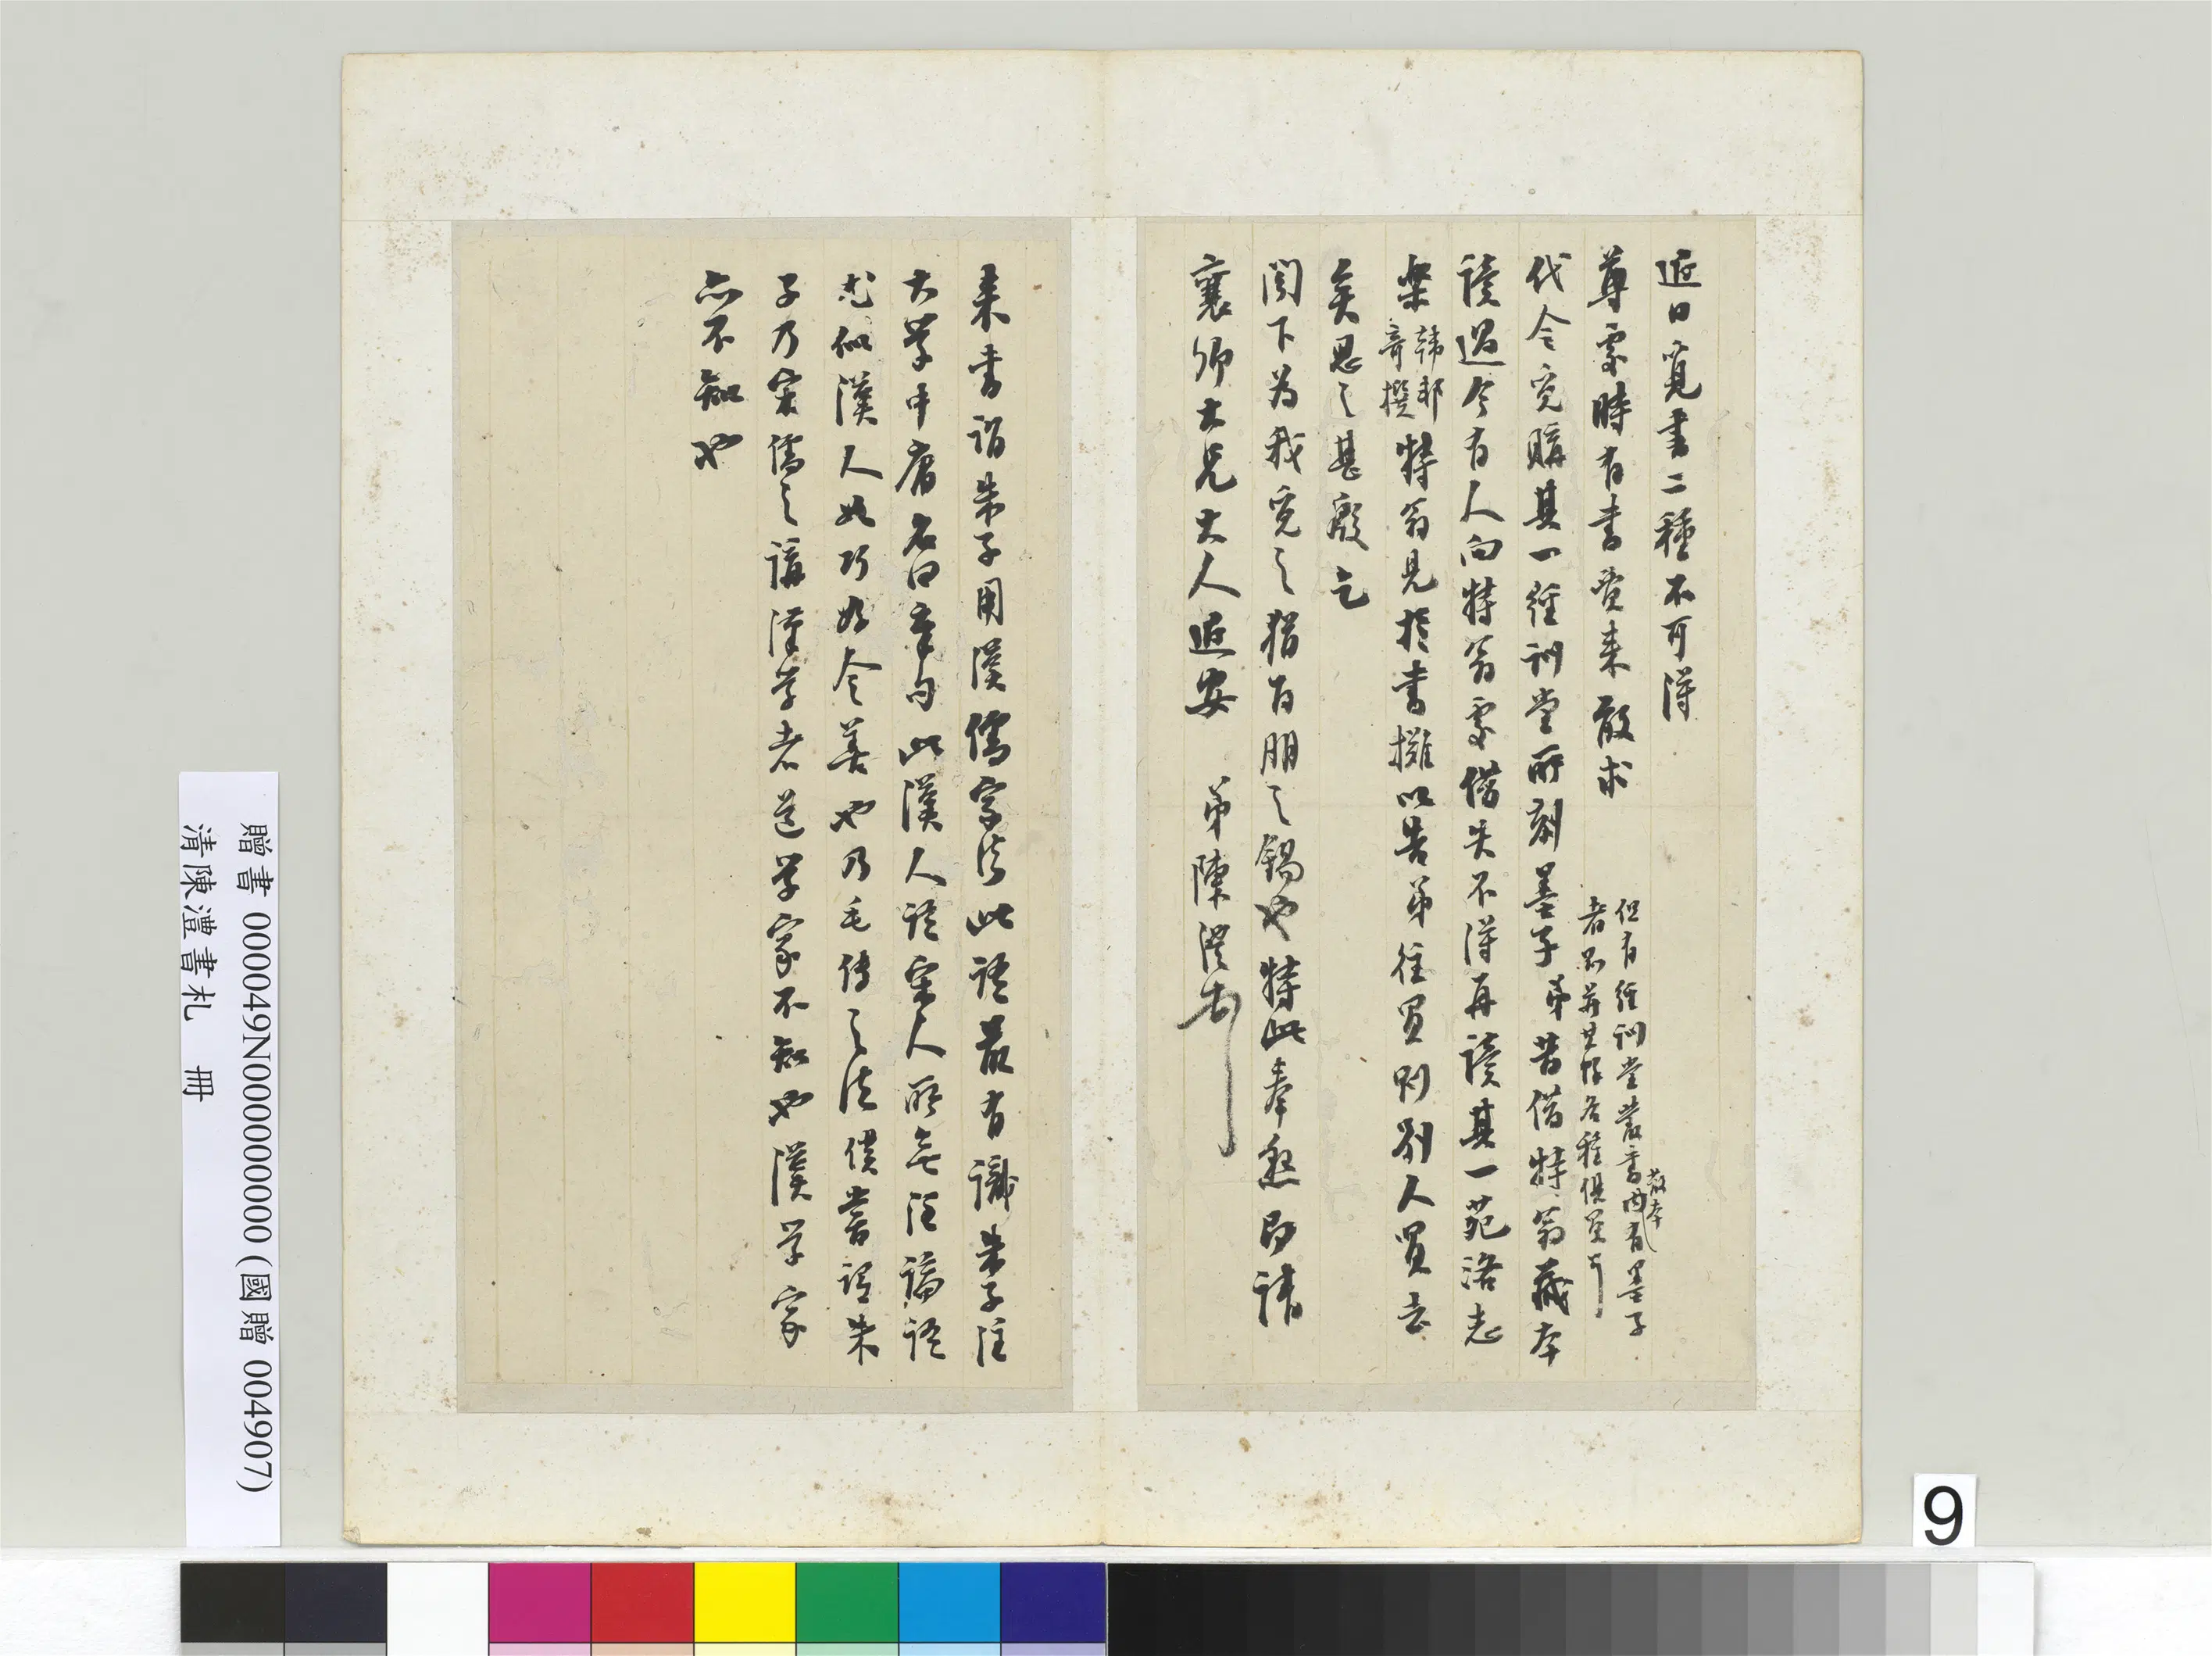 近日覓書二種不可得
尊處時有書賈來敢求
但有經訓堂叢書內有墨子
散本
者不並其帙各種俱買可
代令覓購其一經訓堂所刻墨子弟昔借特翁藏本
讀過今有人向特翁處借失不得再讀其一苑洛志
樂
韓邦
奇撰
特翁見於書攤以告弟往買則別人買去
矣思之甚殷乞
閣下為我覓之猶百朋之錫也特此奉懇即請
襄卿大兄大人近安 弟陳澧
來書謂朱子用漢儒家法此語最有識朱子注
大學中庸名曰章句此漢人語宋人所無注論語
尤似漢人如巧好令善也乃毛傳之法僕嘗謂朱
子乃宋儒之講漢學者道學家不知也漢學家
亦不知也
贈書 000049N000000000 (國贈 004907)
清陳澧書札 冊
9